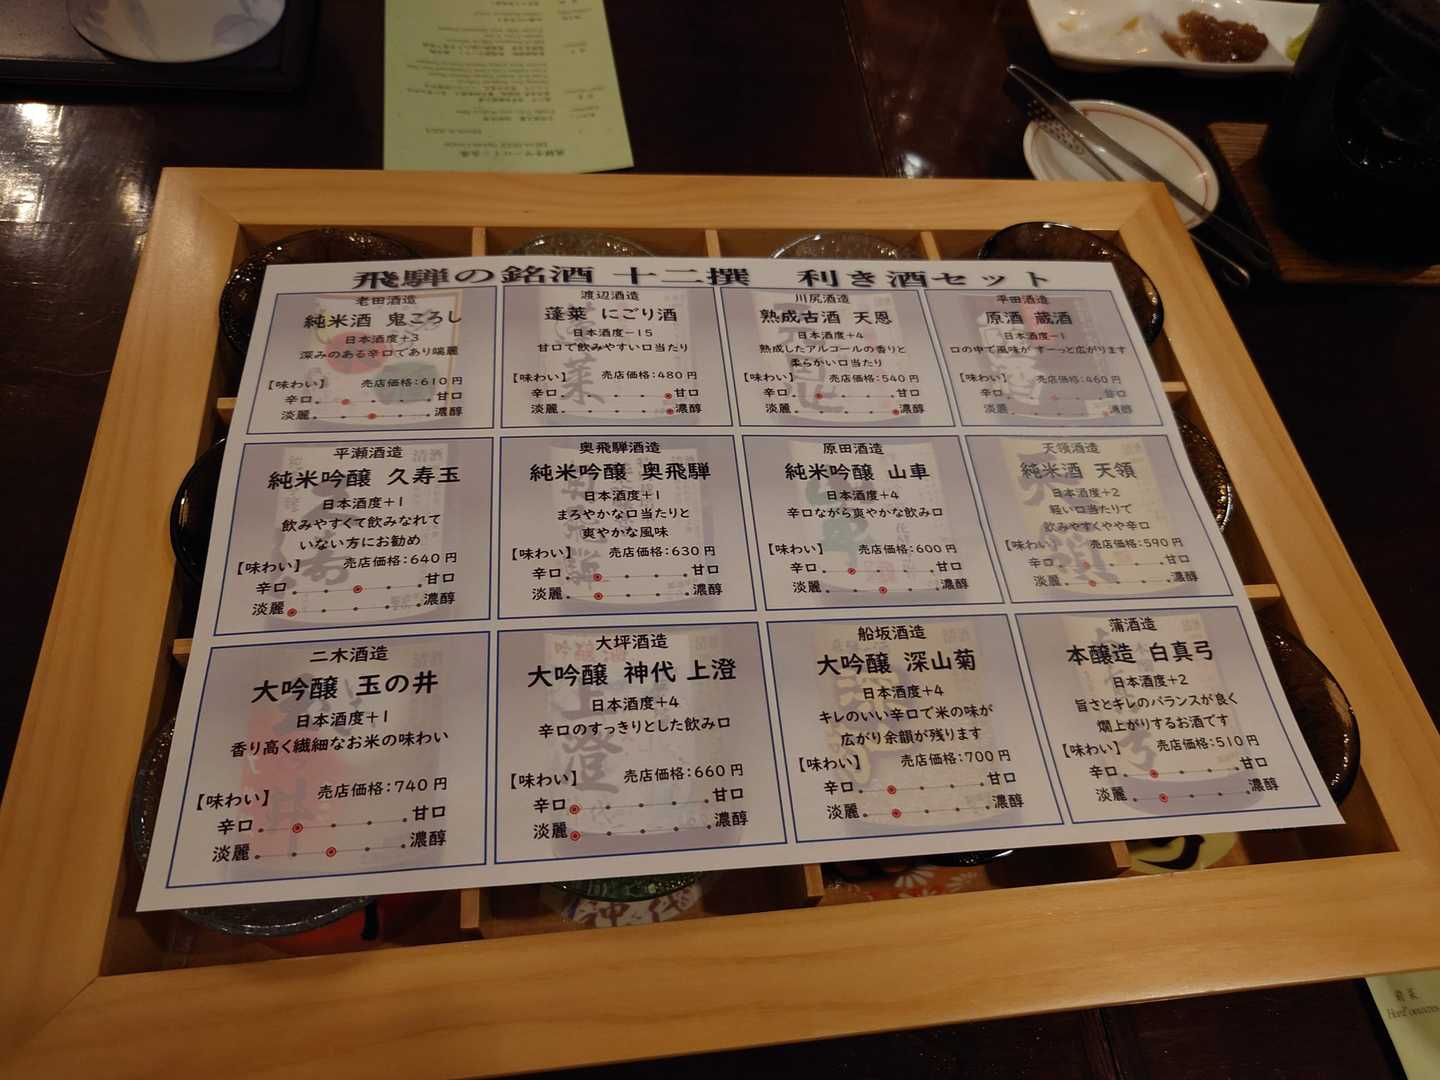 飛騨の銘酒 十二撰 利き酒セット
老田酒造
純米酒 鬼ころし
日本酒度+3
深みのある辛口であり端麗
【味わい】 売店価格:610円
辛口 甘口
淡麗 濃醇
渡辺酒造
蓬莱 にごり酒
日本酒度-15
甘口で飲みやすい口当たり
【味わい】 売店価格:480円
辛口 甘口
淡麗 濃醇
川尻酒造
熟成古酒 天恩
日本酒度+4
熟成したアルコールの香りと
柔らかい口当たり
【味わい】 売店価格:540円
辛口 甘口
淡麗 濃醇
平田酒造
原酒 蔵酒
日本酒度-1
口の中で風味が すーっと広がります
【味わい】 売店価格:460円
辛口 甘口
淡麗 濃醇
平瀬酒造
純米吟醸 久寿玉
日本酒度+1
飲みやすくて飲みなれて
いない方にお勧め
【味わい】 売店価格:640円
辛口 甘口
淡麗 濃醇
奥飛騨酒造
純米吟醸 奥飛騨
日本酒度+1
まろやかな口当たりと
爽やかな風味
【味わい】 売店価格:630円
辛口 甘口
淡麗 濃醇
原田酒造
純米吟醸 山車
日本酒度+4
辛口ながら爽やかな飲み口
【味わい】 売店価格:600円
辛口 甘口
淡麗 濃醇
天領酒造
純米酒 天領
日本酒度+2
軽い口当たりで
飲みやすくやや辛口
【味わい】 売店価格:590円
辛口 甘口
淡麗 濃醇
二木酒造
大吟醸 玉の井
日本酒度+1
香り高く繊細なお米の味わい
【味わい】 売店価格:740円
辛口 甘口
淡麗 濃醇
大坪酒造
大吟醸 神代 上澄
日本酒度+4
辛口のすっきりとした飲み口
【味わい】 売店価格:660円
辛口 甘口
淡麗 濃醇
船坂酒造
大吟醸 深山菊
日本酒度+4
キレのいい辛口で米の味が
広がり余韻が残ります
【味わい】 売店価格:700円
辛口 甘口
淡麗 濃醇
蒲酒造
本醸造 白真弓
日本酒度+2
旨さとキレのバランスが良く
燗上がりするお酒です
【味わい】 売店価格:510円
辛口 甘口
淡麗 濃醇
神代